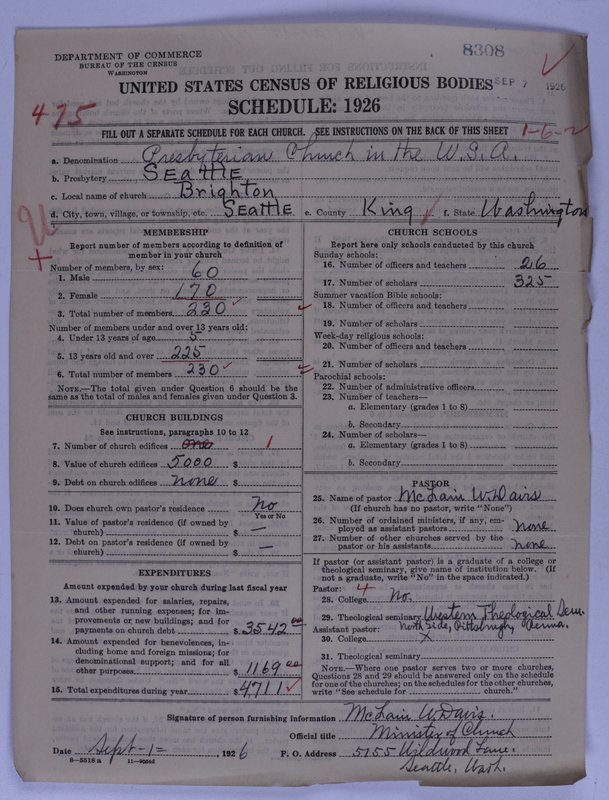 DEPARTMENT OF COMMERCE
BUREAU OF THE CENSUS
WASHINGTON
8308
UNITED STATES CENSUS OF RELIGIOUS BODIES
SEP 7 1926
SCHEDULE: 1926
475
FILL OUT A SEPARATE SCHEDULE FOR EACH CHURCH. SEE INSTRUCTIONS ON THE BACK OF THIS SHEET
1-6-2
a. Denomination Presbyterian Church in the U.S.A.
b. Presbytery Seattle
c. Local name of church Brighton
d. City, town, village, or township, etc. Seattle e. County King f. State Washington
MEMBERSHIP
Report number of members according to definition of member in your church
Number of members, by sex:
1. Male 60
2. Female 170
3. Total number of members 230
Number of members under and over 13 years old:
4. Under 13 years of age 5
5. 13 years old and over 225
6. Total number of members 230
NOTE.—The total given under Question 6 should be the same as the total of males and females given under Question 3.
CHURCH BUILDINGS
See instructions, paragraphs 10 to 12
7. Number of church edifices one 1
8. Value of church edifices 5000 $
9. Debt on church edifices none $
10. Does church own pastor's residence No
Yes or No
11. Value of pastor's residence (if owned by church) $ —
12. Debt on pastor's residence (if owned by church) $ —
EXPENDITURES
Amount expended by your church during last fiscal year
13. Amount expended for salaries, repairs, and other running expenses; for improvements or new buildings; and for payments on church debt $ 3542 00
14. Amount expended for benevolences, including home and foreign missions; for denominational support; and for all other purposes $ 1169 00
15. Total expenditures during year $ 4711
CHURCH SCHOOLS
Report here only schools conducted by this church
Sunday schools:
16. Number of officers and teachers 26
17. Number of scholars 325
Summer vacation Bible schools:
18. Number of officers and teachers
19. Number of scholars
Week-day religious schools:
20. Number of officers and teachers
21. Number of scholars
Parochial schools:
22. Number of administrative officers
23. Number of teachers—
a. Elementary (grades 1 to 8)
b. Secondary
24. Number of scholars—
a. Elementary (grades 1 to 8)
b. Secondary
PASTOR
25. Name of pastor McLain W. Davis
(If church has no pastor, write "None")
26. Number of ordained ministers, if any, employed as assistant pastors none
27. Number of other churches served by the pastor or his assistants none
If pastor (or assistant pastor) is a graduate of a college or theological seminary, give name of institution below. (If not a graduate, write "No" in the space indicated.)
Pastor: 4
28. College No.
29. Theological seminary Western Theological Sem.
Assistant pastor: North Side, Pittsburgh, Penna.
30. College
31. Theological seminary
NOTE.—Where one pastor serves two or more churches, Questions 28 and 29 should be answered only on the schedule for one of the churches; on the schedules for the other churches, write "See schedule for church."
Signature of person furnishing information McLain W. Davis.
Official title Minister of Church
Date Sept-1= , 1926 P. O. Address 5155 Wildwood Lane.
Seattle, Wash.
8-5518 a